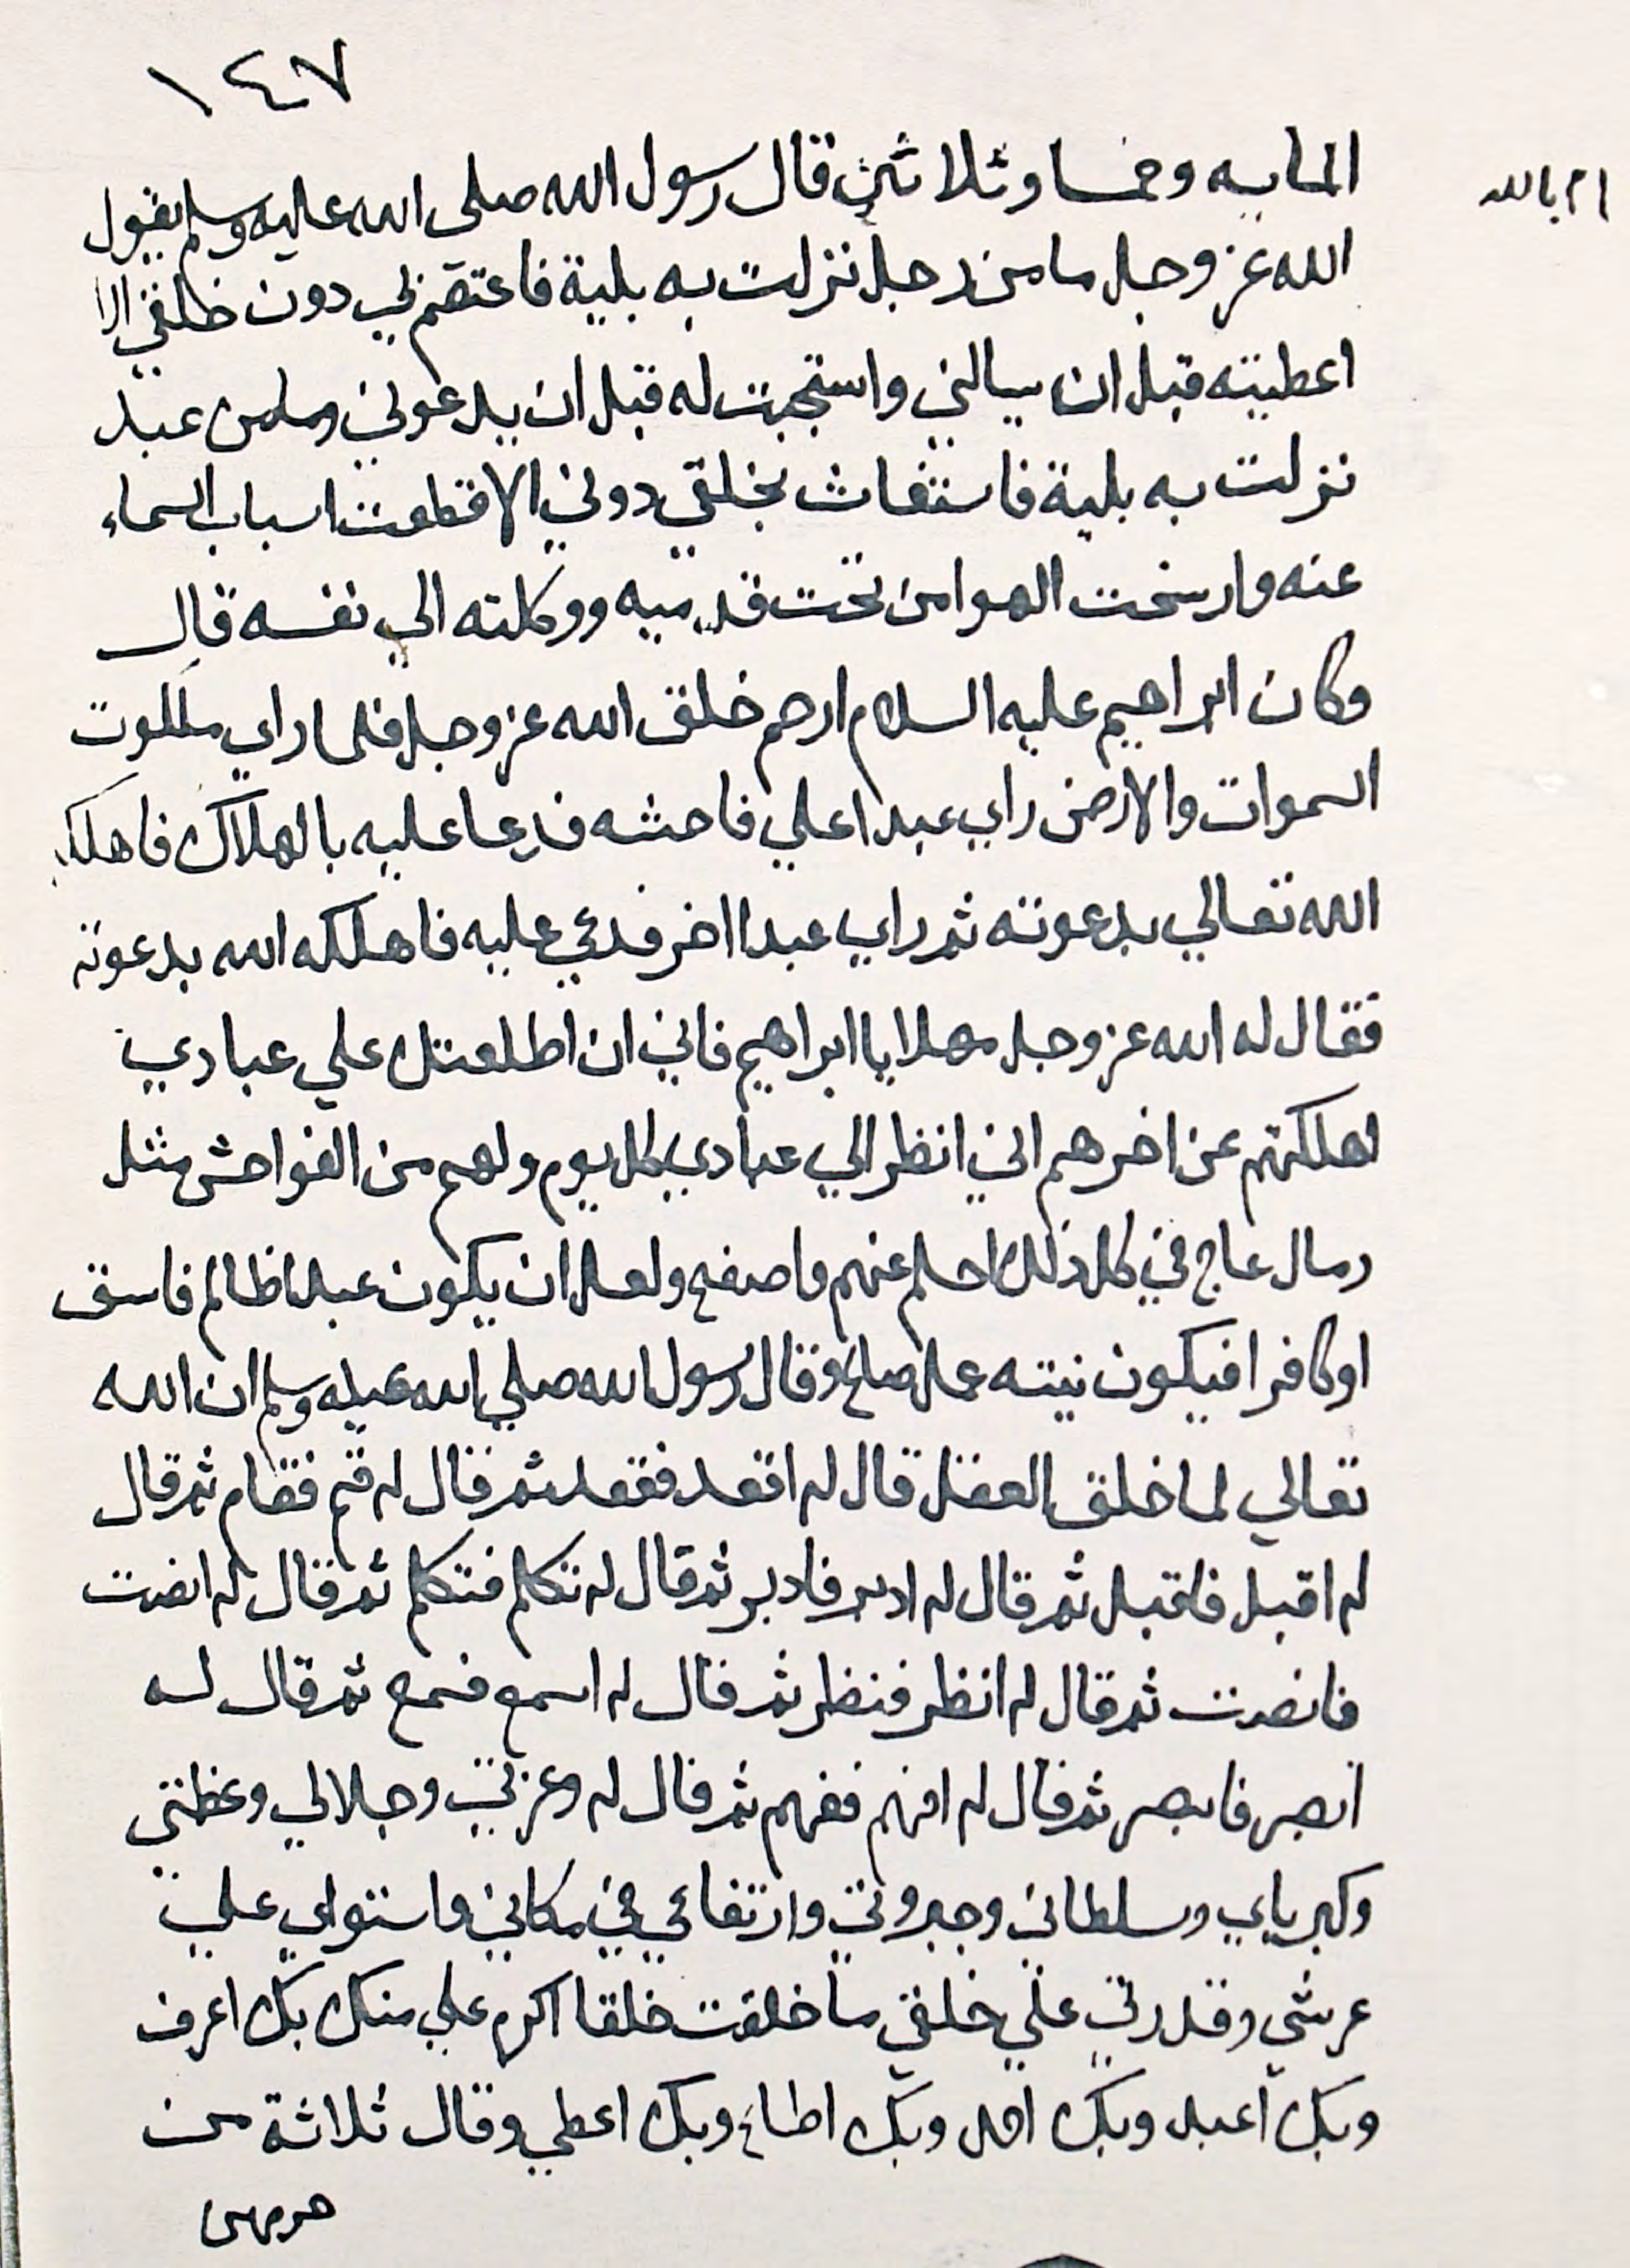 ١٤٧
المايه وخمسا وثلاثين قال رسول الله صلى الله عليه وسلم يقول
الله عز وجل ما من رجل نزلت به بلية فاعتصم بي دون خلقي الا
اعطيته قبل ان يسالني واستجبت له قبل ان يدعوني وما من عبد
نزلت به بلية فاستغاث بخلقي دوني الا قطعت اسباب السماء
عنه وارسخت الهوا من تحت قدميه ووكلته الي نفسه قال
وكان ابراهيم عليه السلام ارحم خلق الله عز وجل فلما راي ملكوت
السموات والارض راي عبدا علي فاحشه فدعا عليه بالهلاك فاهلكه
الله تعالي بدعوته ثم راي عبدا اخر فدعي عليه فاهلكه الله بدعوته
فقال له الله عز وجل مهلا يا ابراهيم فاني ان اطلعتك علي عبادي
اهلكتهم عن اخرهم اني انظر الي عبادي كل يوم ولهم من الفواحش مثل
رمال عاج في كل ذلك احلم عنهم واصفح ولعل ان يكون عبدا ظالم فاسق
او كافرا فيكون نيته عمل صالح وقال رسول الله صلي الله عليه وسلم ان الله
تعالي لما خلق العقل قال له اقعد فقعد ثم قال له قم فقام ثم قال
له اقبل فاقبل ثم قال له ادبر فادبر ثم قال له تكلم فتكلم ثم قال له انصت
فانصت ثم قال له انظر فنظر ثم قال له اسمع فسمع ثم قال له
ابصر فابصر ثم قال له افهم ففهم ثم قال له وعزتي وجلالي وعظمتي
وكبرياي وسلطاني وجبروتي وارتفاعي في مكاني واستواي علي
عرشي وقدرتي علي خلقي ما خلقت خلقا اكرم علي منك بك اعرف
وبك اعبد وبك احمد وبك اطاع وبك اعطي وقال ثلاثة من